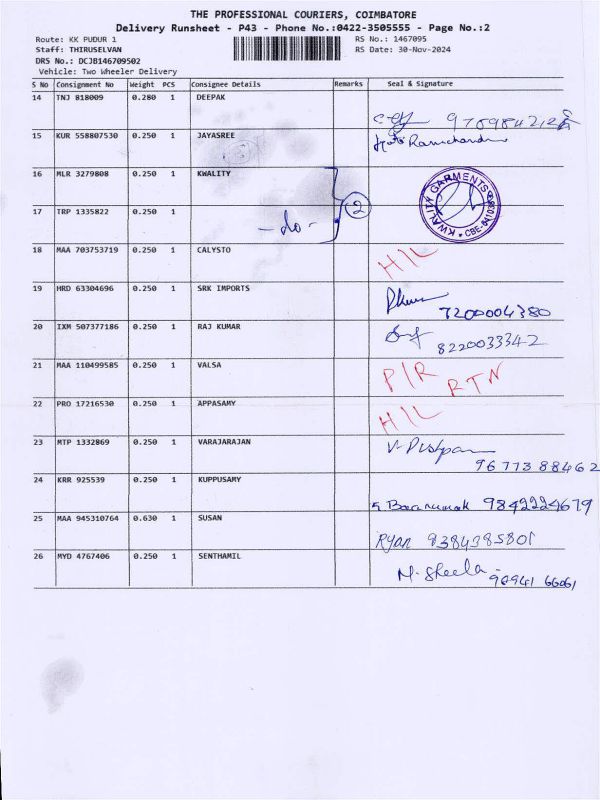 THE PROFESSIONAL COURIERS, COIMBATORE
Delivery Runsheet - P43 - Phone No.:0422-3505555 - Page No.:2
Route: KK PUDUR 1 RS No.: 1467095
Staff: THIRUSELVAN RS Date: 30-Nov-2024
DRS No.: DCJB146709502
Vehicle: Two Wheeler Delivery
S No Consignment No Weight PCS Consignee Details Remarks Seal & Signature
14 TNJ 818009 0.280 1 DEEPAK
15 KUR 558807530 0.250 1 JAYASREE
16 MLR 3279808 0.250 1 KWALITY
17 TRP 1335822 0.250 1 -do- 2
KWALITY GARMENTS
18 MAA 703753719 0.250 1 CALYSTO H/L
19 HRD 63304696 0.250 1 SRK IMPORTS 7200004380
20 IXM 507377186 0.250 1 RAJ KUMAR 8220033342
21 MAA 110499585 0.250 1 VALSA P/R RTN
22 PRO 17216530 0.250 1 APPASAMY H/L
23 MTP 1332869 0.250 1 VARAJARAJAN 9677388462
24 KRR 925539 0.250 1 KUPPUSAMY 9842224679
25 MAA 945310764 0.630 1 SUSAN Ryan 9384985801
26 MYD 4767406 0.250 1 SENTHAMIL M. Sheela